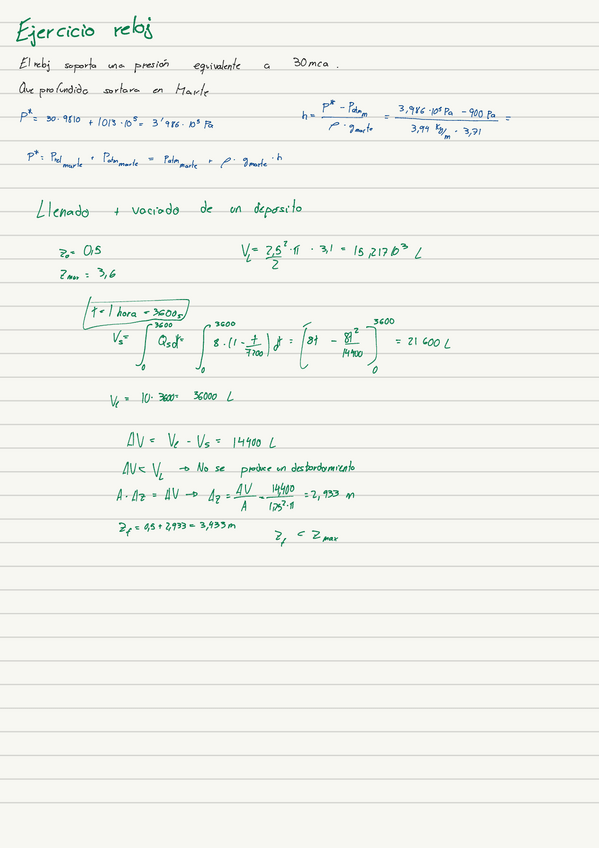 Ejercicio reloj
El reloj soporta una presión equivalente a 30mca.
Que profundido sortara en Marte
P* = 30·9810 + 1013·10⁵ = 3'986·10⁵ Pa
h = (P* - Patm m) / (ρ·g marte) = (3,986·10⁵ Pa - 900 Pa) / (3,94 kg/m · 3,71) =
P* = Prel marte + Patm marte = Patm marte + ρ·g marte·h
Llenado + vaciado de un deposito
z₀ = 0,5
V_L = 2,5²·π / 2 · 3,1 = 15,217·10³ L
z max = 3,6
t = 1 hora = 3600s
Vs = ∫₀³⁶⁰⁰ Qs dt = ∫₀³⁶⁰⁰ 8·(1 - t/7200) dt = [8t - 8t²/14400]₀³⁶⁰⁰ = 21 600 L
Ve = 10·3600 = 36000 L
ΔV = Ve - Vs = 14400 L
ΔV < V_L → No se produce un desbordamiento
A·Δz = ΔV → Δz = ΔV/A = 14,400 / 1,25²·π = 2,933 m
z_f = 0,5 + 2,933 = 3,433 m
z_f < z max